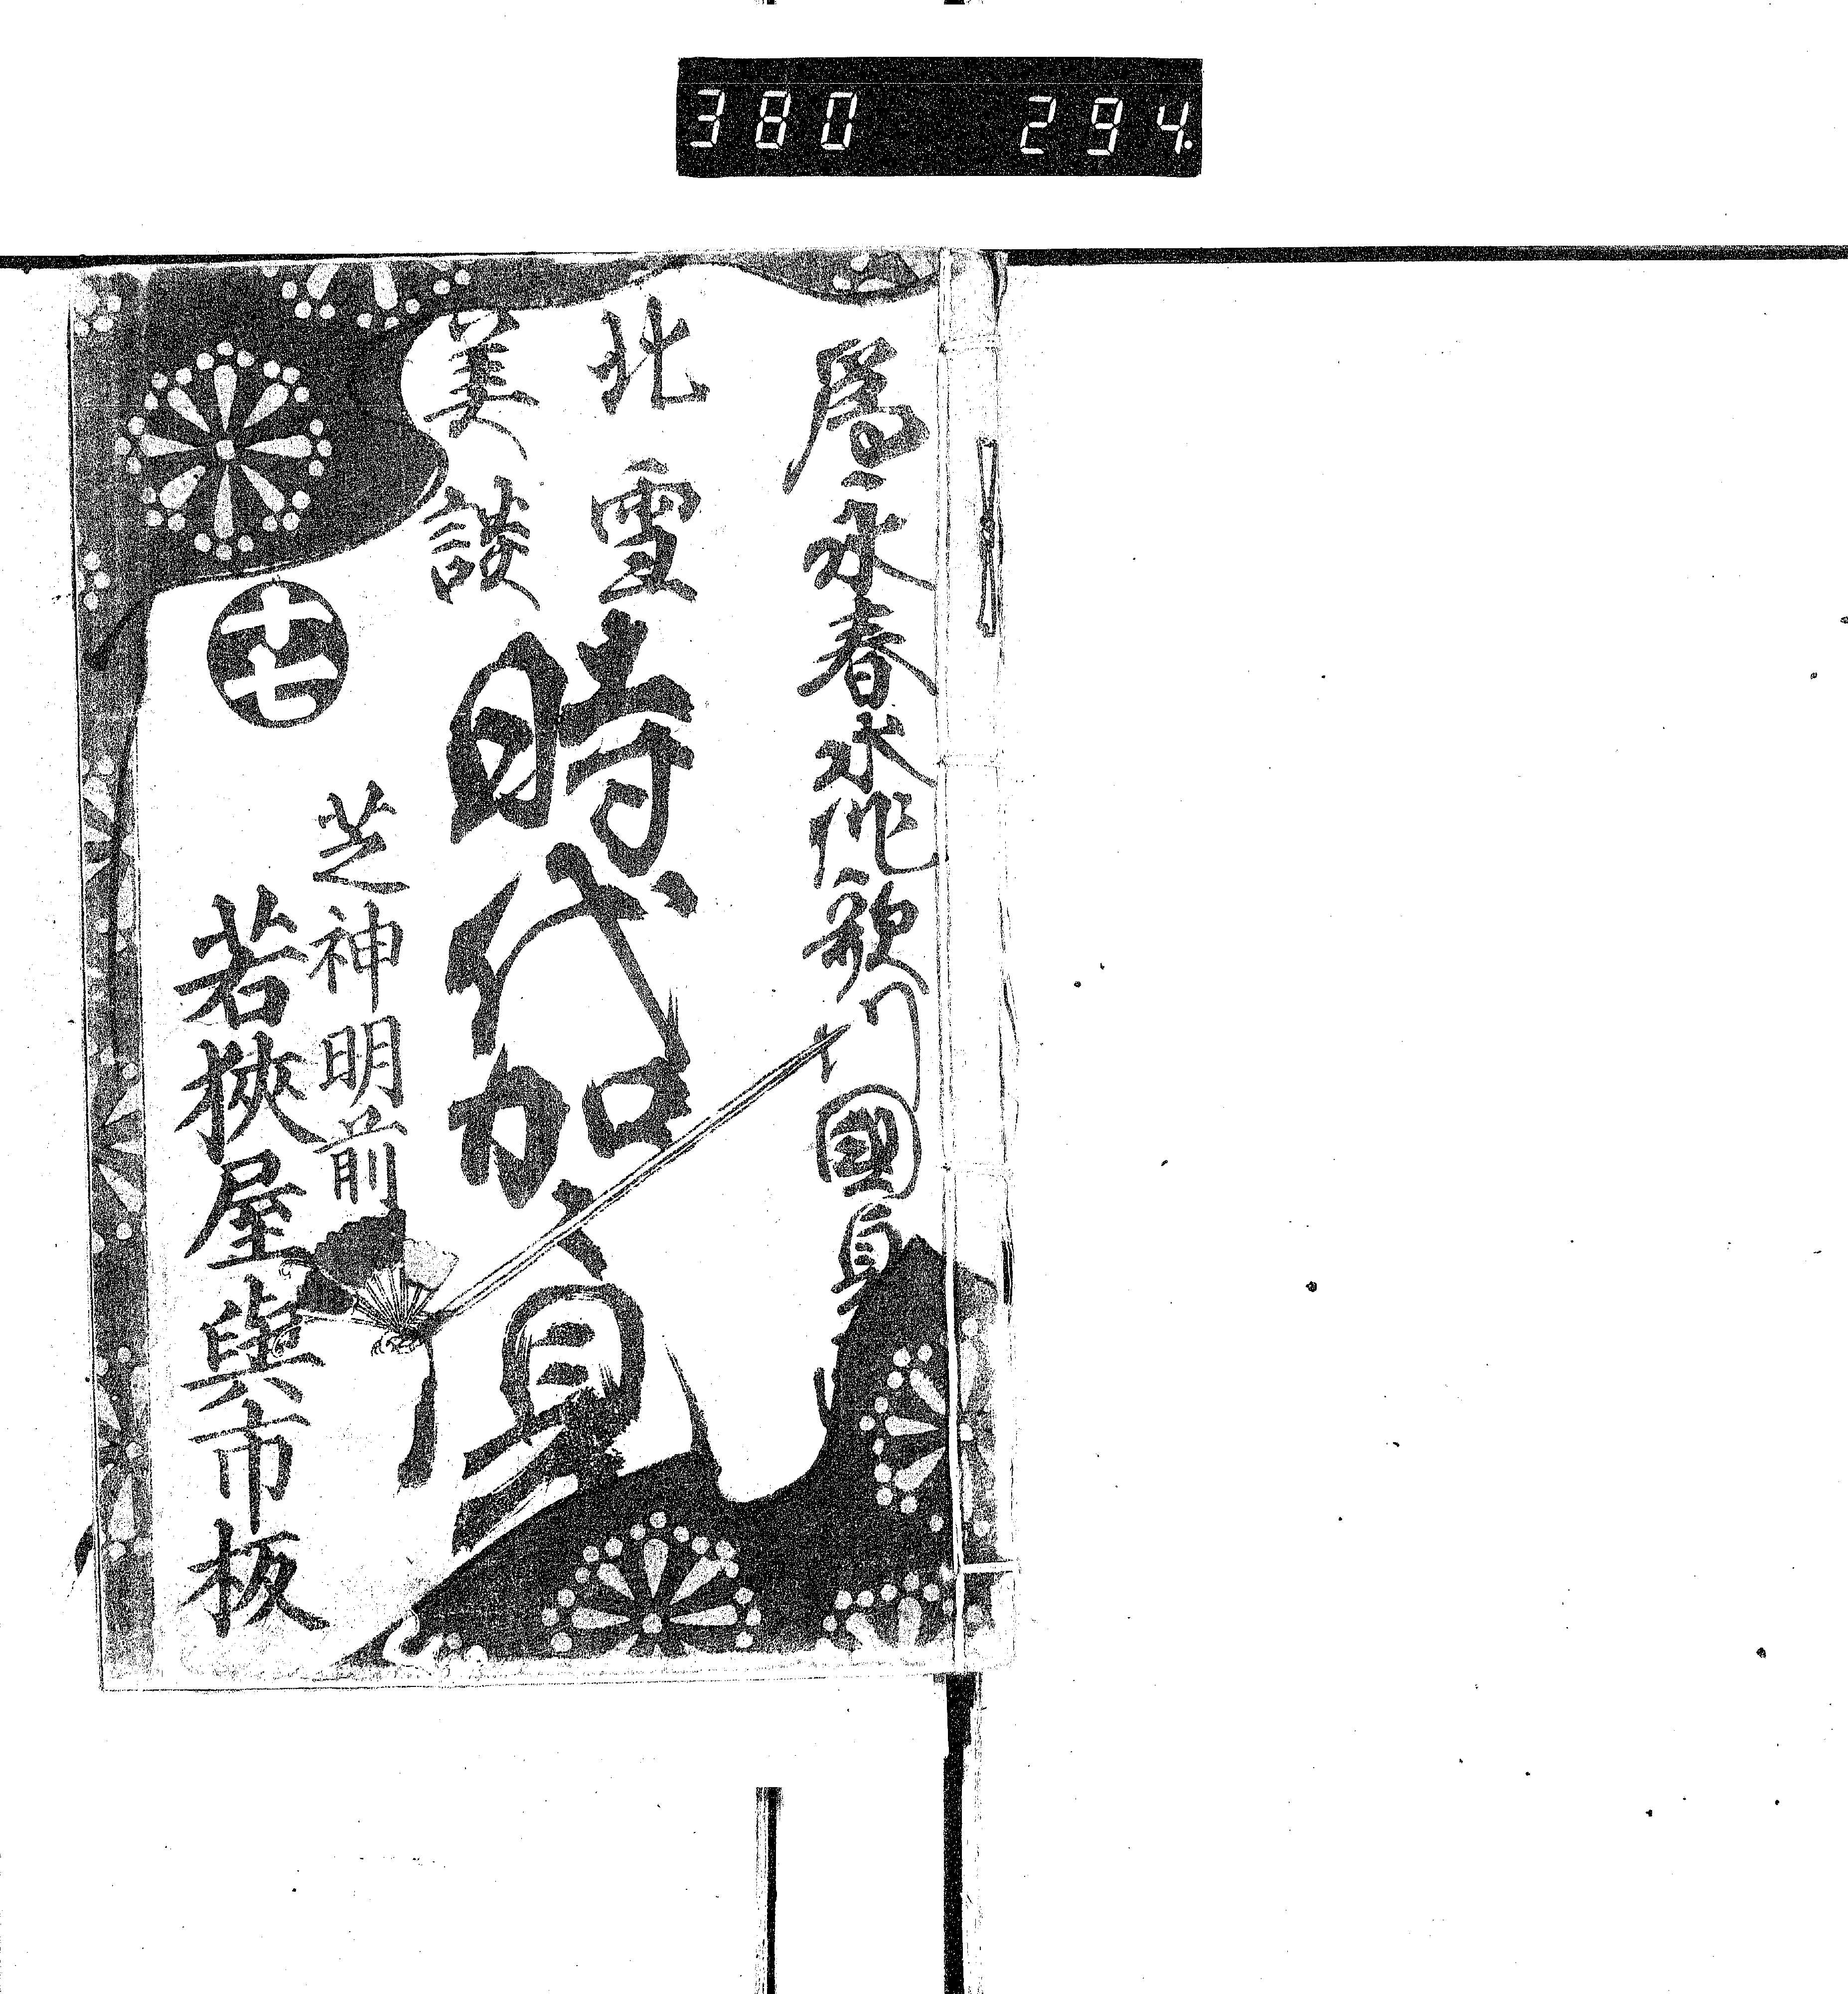 380 294.
爲永春水作歌川國貞
北雪
美談
時代加ゞ見
十七
芝神明前
若狹屋與市板